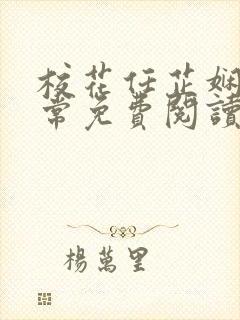 校花任芷娴
常免費閱讀
楊萬里